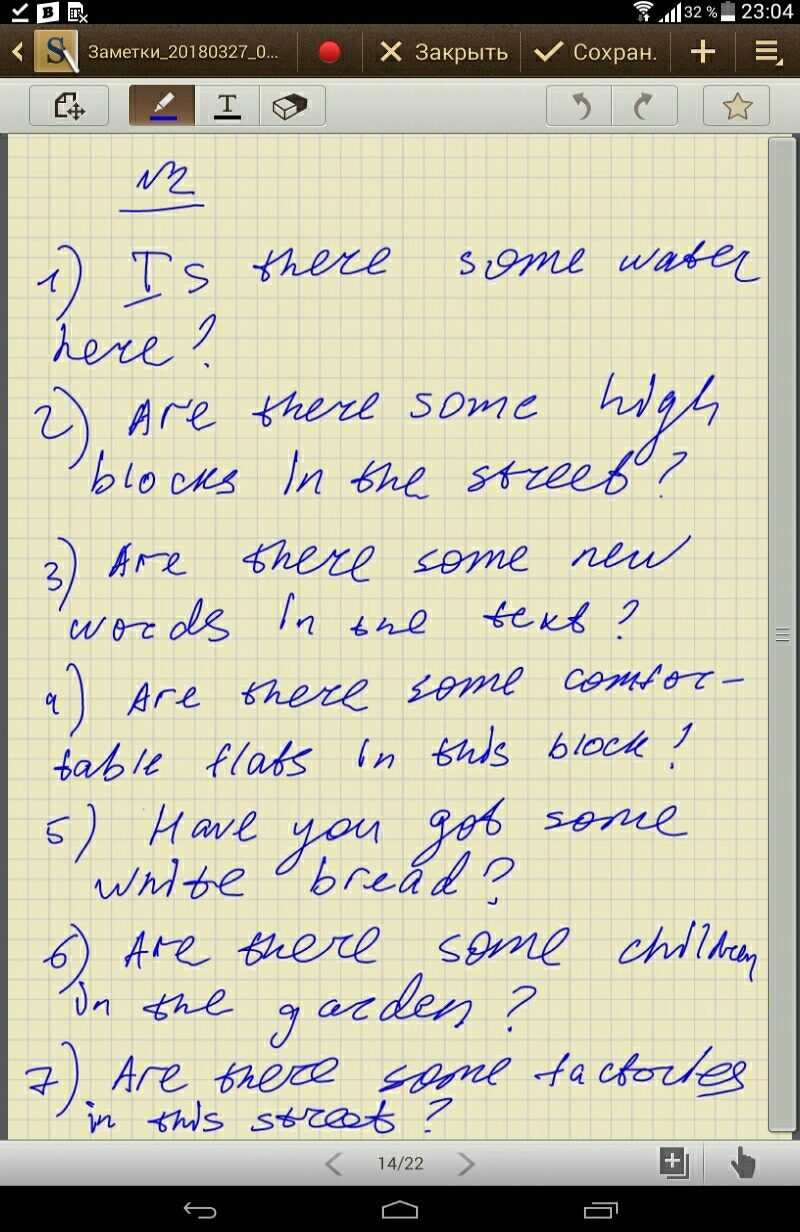 32 % 23:04
Заметки_20180327_0... Закрыть Сохран.
T
№2
1) Is there some water
here?
2) Are there some high
blocks in the street?
3) Are there some new
words in the text?
4) Are there some comfor-
table flats in this block?
5) Have you got some
white bread?
6) Are there some children
in the garden?
7) Are there some factories
in this street?
14/22